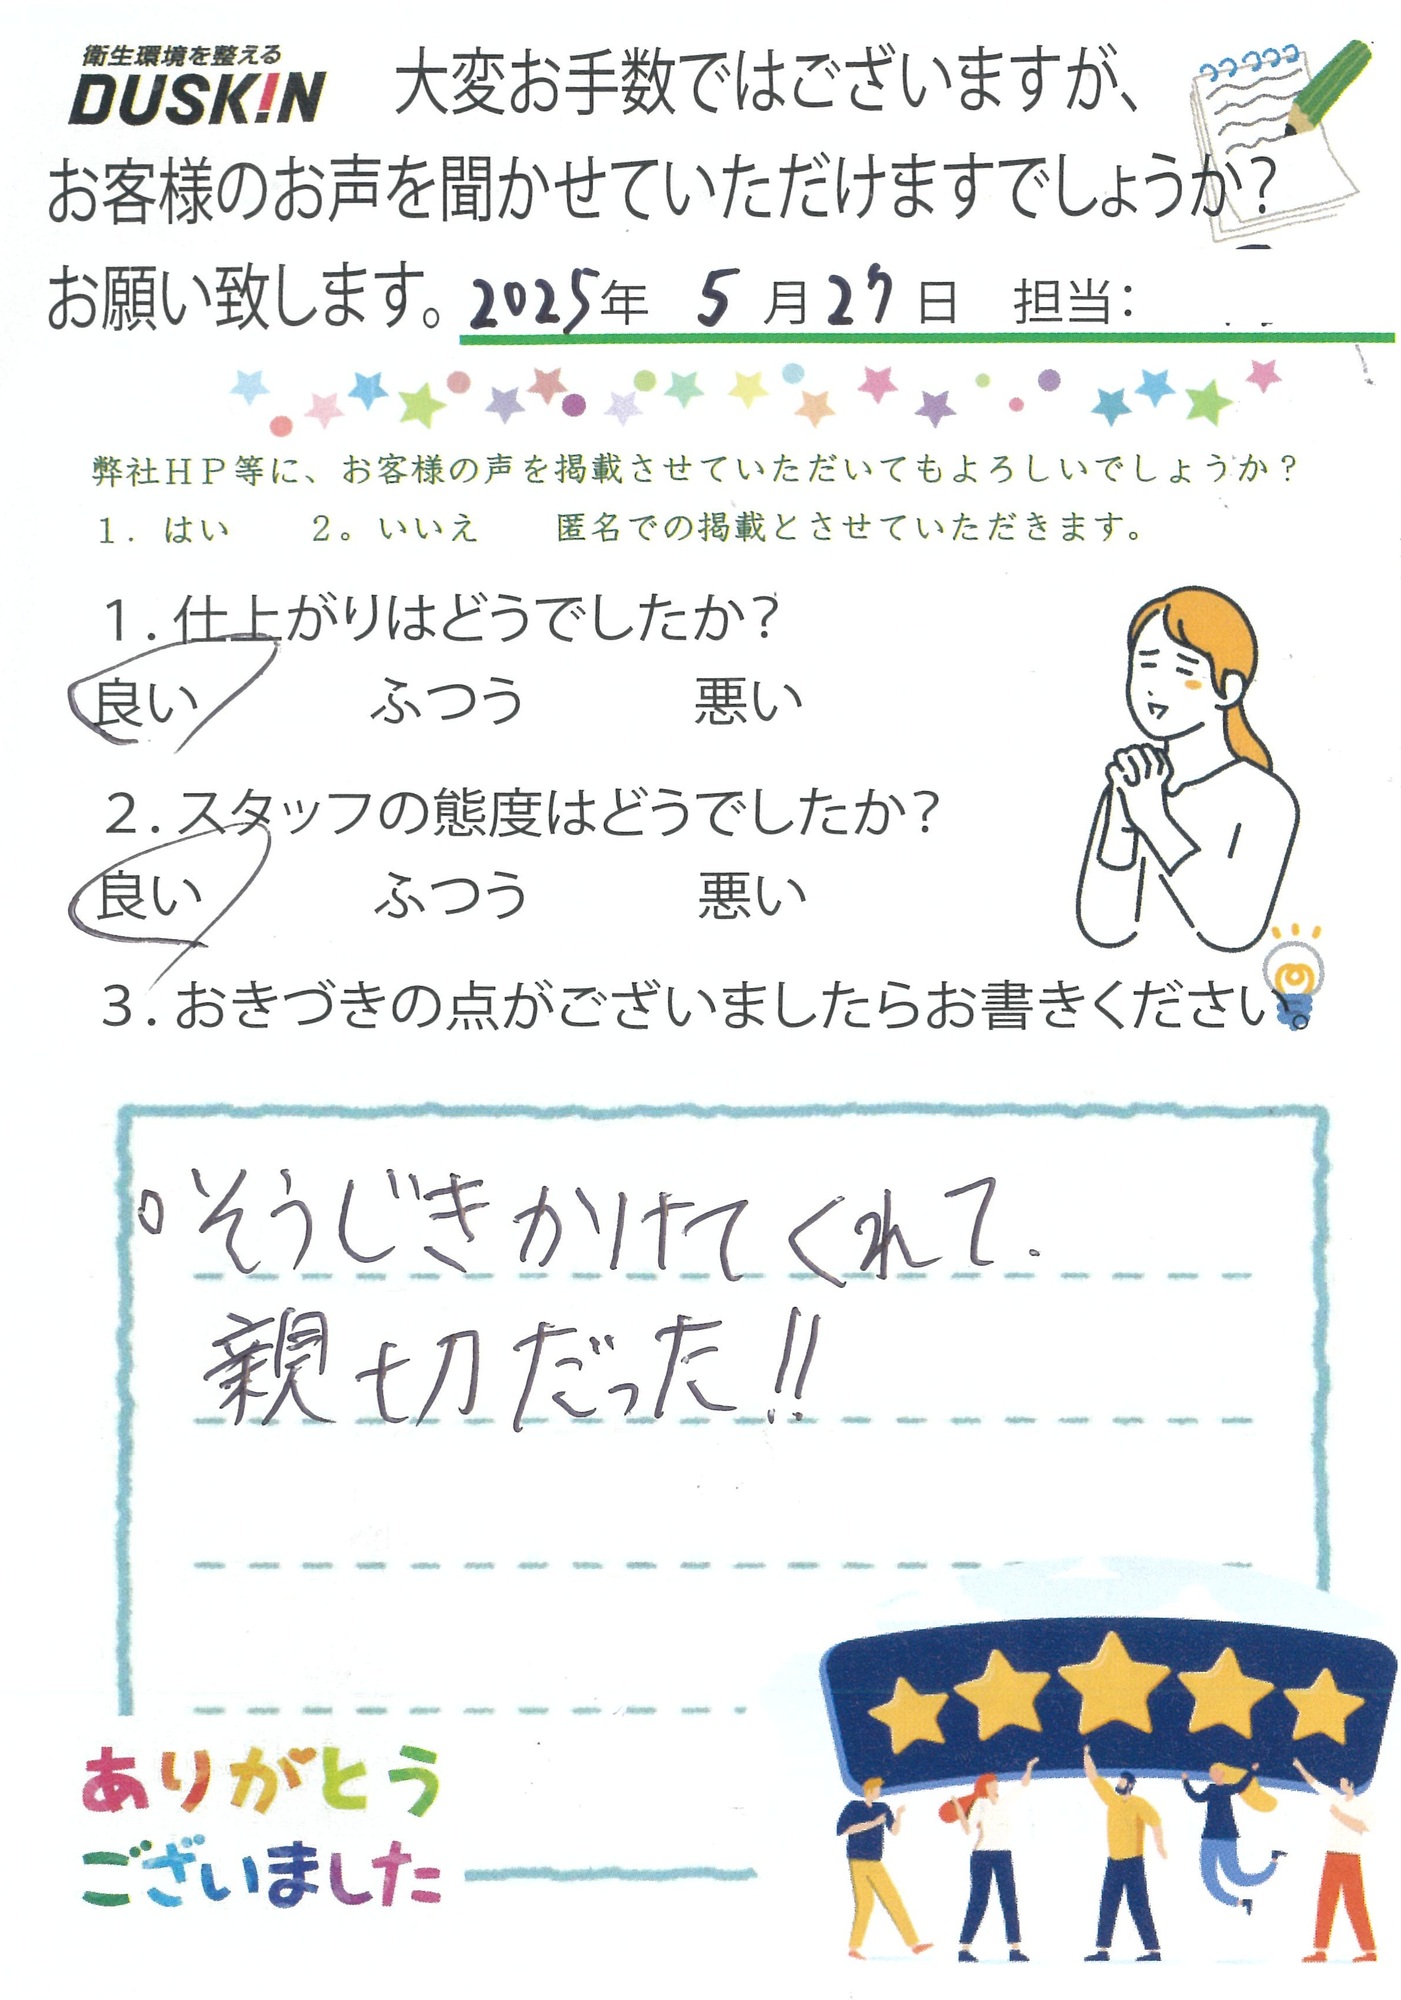 衛生環境を整える
DUSKIN 大変お手数ではございますが、
お客様のお声を聞かせていただけますでしょうか？
お願い致します。2025年 5月27日 担当：
弊社ＨＰ等に、お客様の声を掲載させていただいてもよろしいでしょうか？
１．はい ２。いいえ 匿名での掲載とさせていただきます。
１．仕上がりはどうでしたか？
良い ふつう 悪い
２．スタッフの態度はどうでしたか？
良い ふつう 悪い
３．おきづきの点がございましたらお書きください。
。そうじきかけてくれて.
親切だった!!
ありがとう
ございました